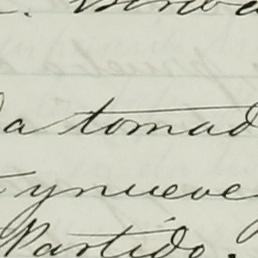 da tomad
y nueve
Partido.